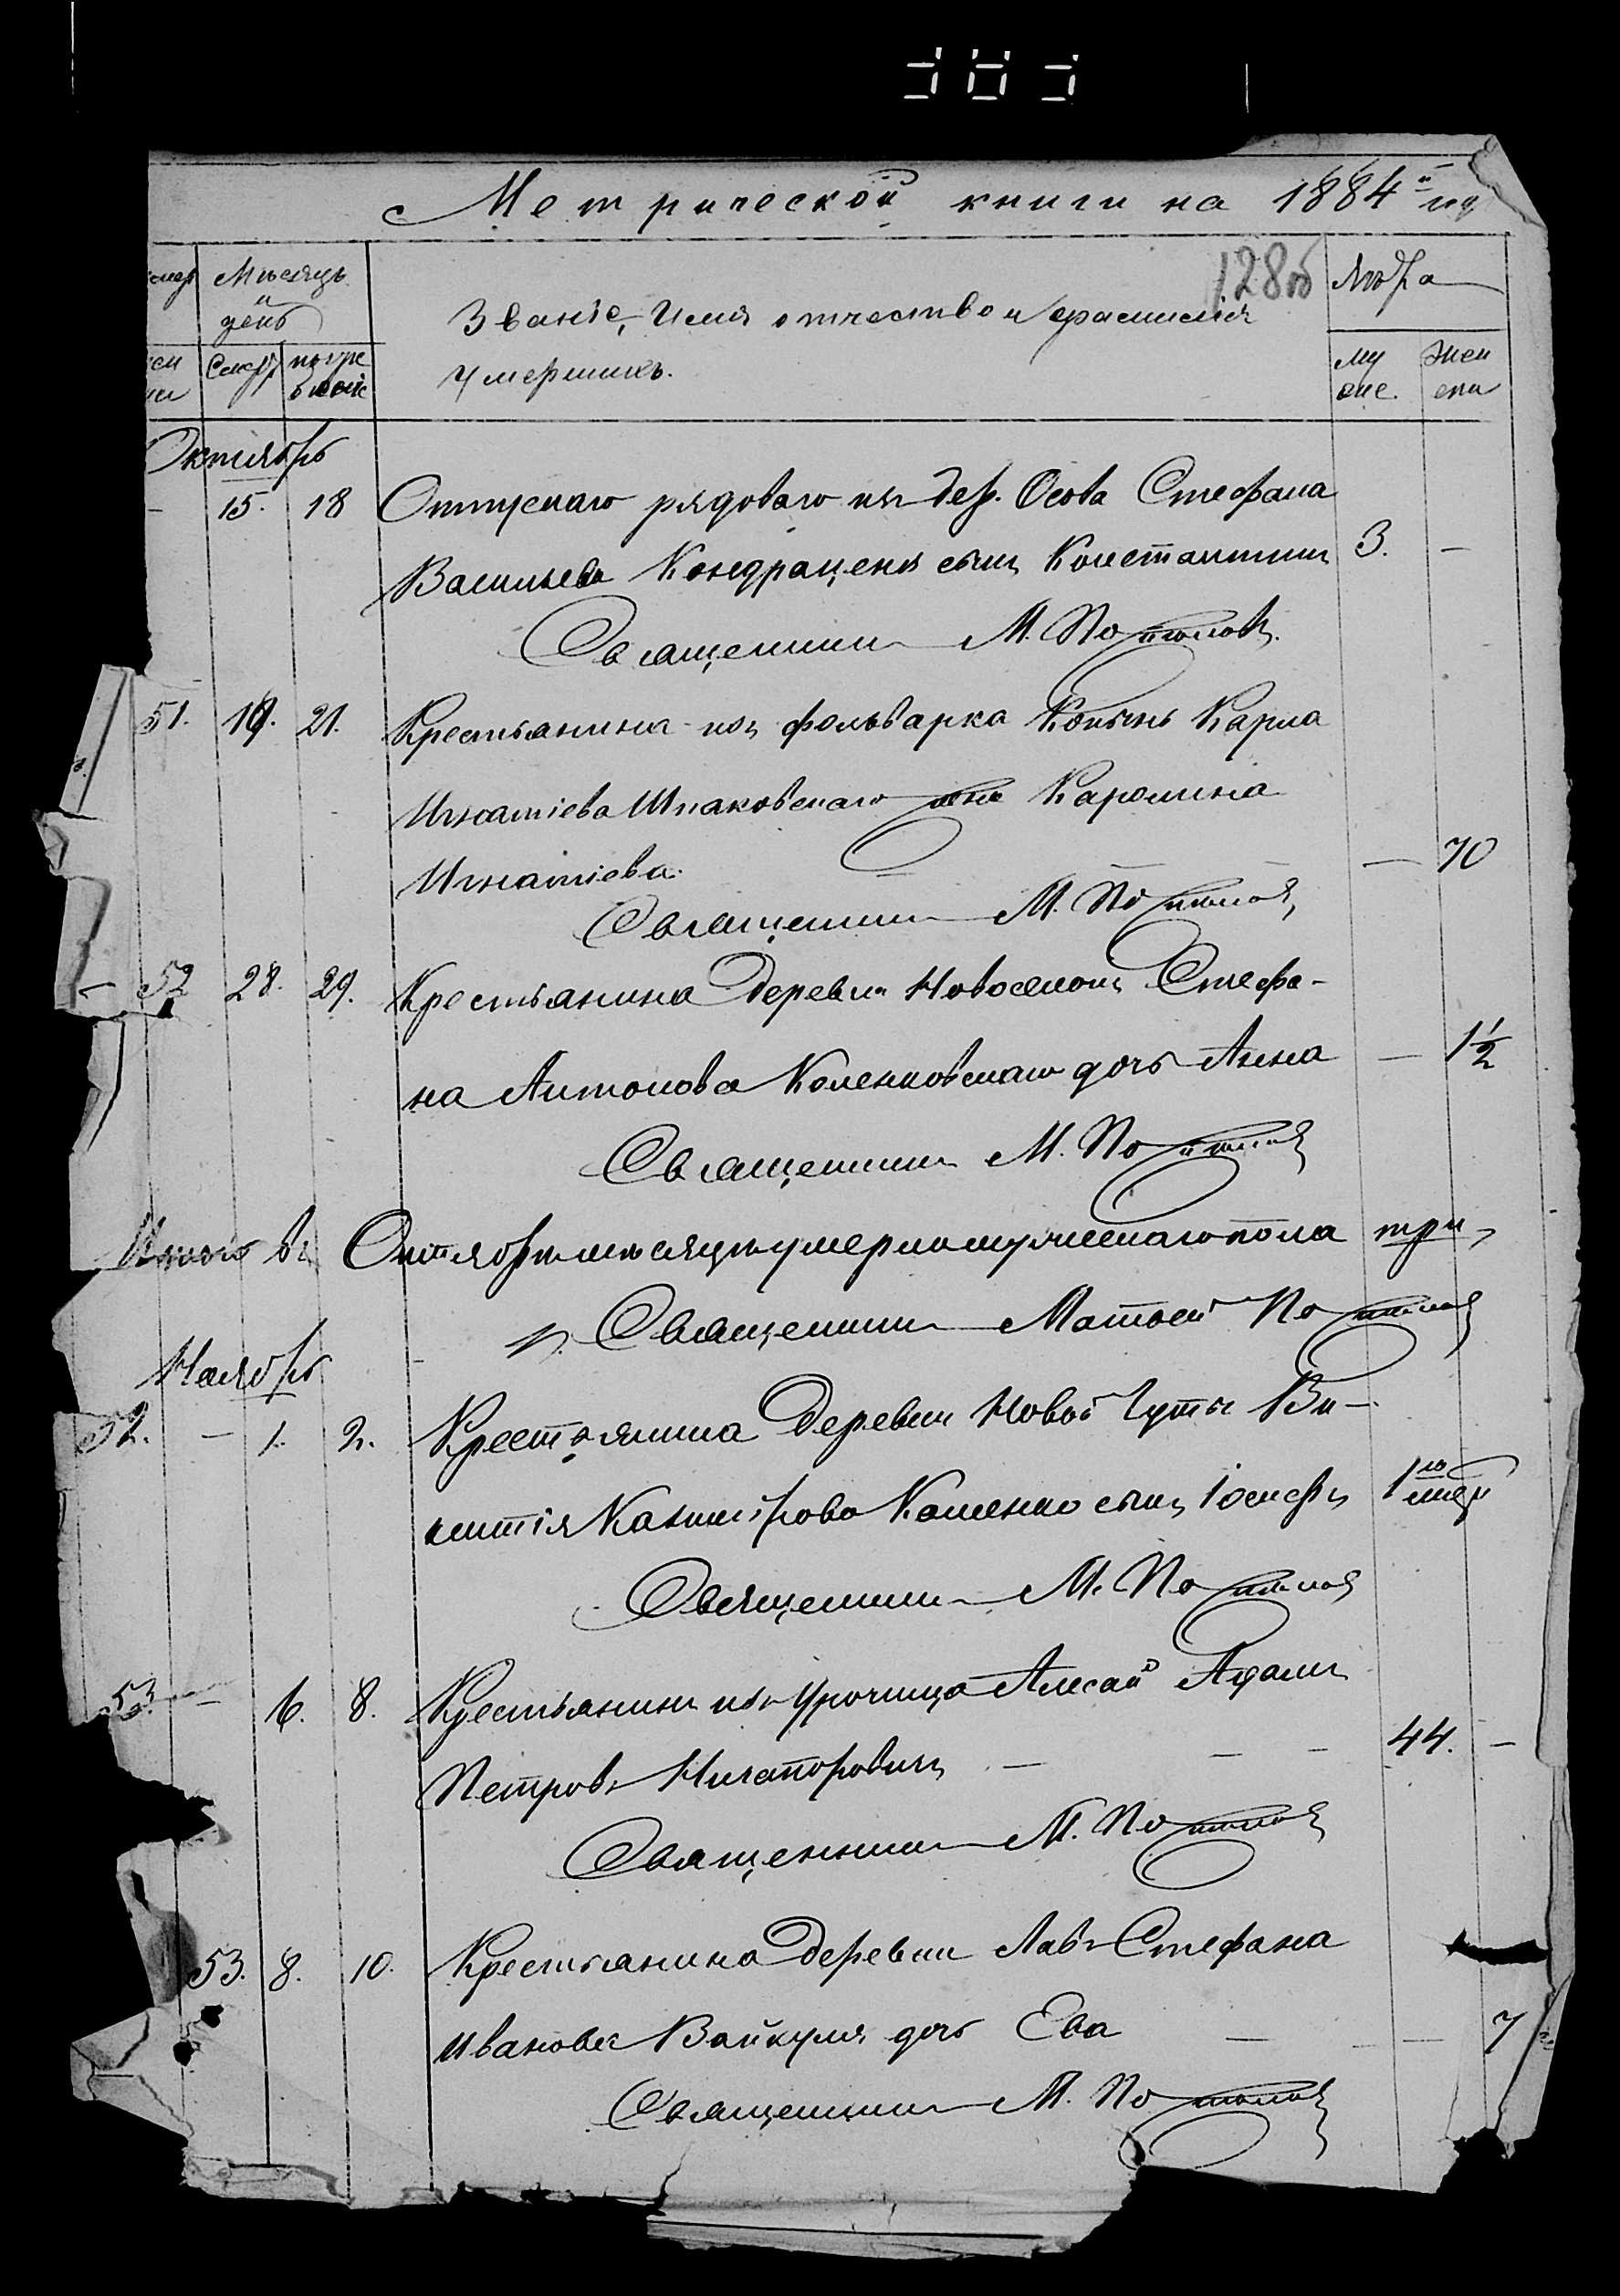 Метрической книги на 1884й год
128об
Мѣсяцъ и день
Звание, Имя отчество и фамилія
Умершихъ.
Лѣта
Смер погре
бенія
му
же.
Жен
ска
Октябрь
15. 18 Отпускаго рядоваго изъ дер. Осова Стефана
Васильева Кондраценя сынъ Константинъ 3. —
Священникъ М.
51. 19. 21. Крестьянина изъ фольварка Копынь Карла
Игнатіева Шпаковскаго жена Каролина
Игнатіева. — 70
Священникъ М.
52 28. 29. Крестьянина деревни Новоселокъ Стефа-
на Антонова Коленковскаго дочь Анна — 1½
Священникъ М.
Итого въ Октябрѣ мѣсяцѣ умерло мужескаго пола три,
Священникъ Матѳей
Наябрь
52. — 1. 2. Крестьянина деревни Новой Гуты Ви-
кентія Казимірова сынъ Іосифъ 1го
Священникъ М.
53. — 6. 8. Крестьянинъ изъ урочища Адамъ
Петровъ Ничипоровичъ — — — 44. —
Священникъ М.
53. 8. 10. Крестьянина деревни Лавъ Стефана
Иванова Вайкуля дочь Ева — — 7
Священникъ М.